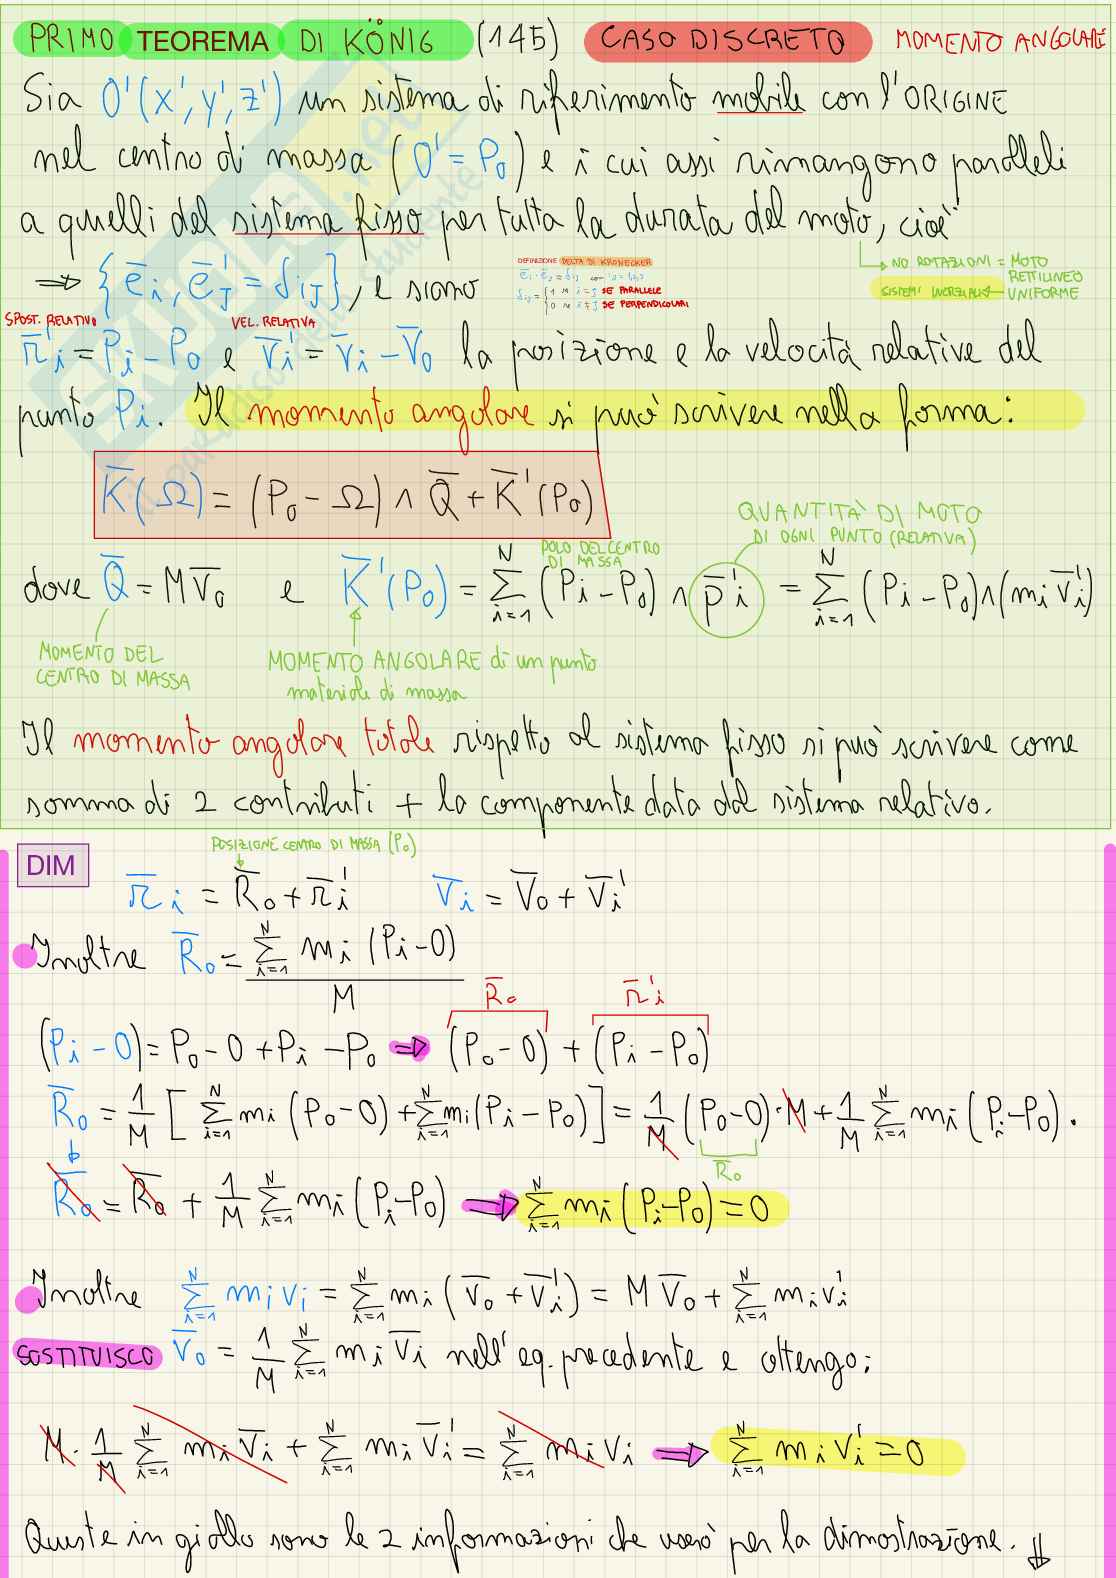 PRIMO TEOREMA DI KÖNIG (145) CASO DISCRETO MOMENTO ANGOLARE
Sia O'(x',y',z') un sistema di riferimento mobile con l'ORIGINE
nel centro di massa (O' = P₀) e i cui assi rimangono paralleli
a quelli del sistema fisso per tutta la durata del moto, cioè
→ NO ROTAZIONI = MOTO RETTILINEO UNIFORME
SISTEMI INERZIALI
⇒ {ē_i, ē'_J = δ_iJ}, e siano
DEFINIZIONE DELTA DI KRONECKER
δ_ij = { 1 se i=j SE PARALLELE
0 se i≠j SE PERPENDICOLARI
SPOST. RELATIVO VEL. RELATIVA
r̄'_i = P_i − P₀ e v̄'_i = v̄_i − v̄₀ la posizione e la velocità relative del
punto P_i. Il momento angolare si può scrivere nella forma:
K̄(Ω) = (P₀ − Ω) ∧ Q̄ + K̄'(P₀)
QUANTITÀ DI MOTO
DI OGNI PUNTO (RELATIVA)
POLO DEL CENTRO
DI MASSA
dove Q̄ = M v̄₀ e K̄'(P₀) = Σ_{i=1}^N (P_i − P₀) ∧ p̄'_i = Σ_{i=1}^N (P_i − P₀) ∧ (m_i v̄'_i)
MOMENTO DEL
CENTRO DI MASSA
MOMENTO ANGOLARE di un punto
materiale di massa
Il momento angolare totale rispetto al sistema fisso si può scrivere come
somma di 2 contributi + la componente data dal sistema relativo.
DIM
POSIZIONE CENTRO DI MASSA (P₀)
r̄_i = R̄₀ + r̄'_i v̄_i = v̄₀ + v̄'_i
Inoltre R̄₀ = Σ_{i=1}^N m_i (P_i − O) / M
R̄₀ r̄'_i
(P_i − O) = P₀ − O + P_i − P₀ ⇒ (P₀ − O) + (P_i − P₀)
R̄₀ = 1/M [ Σ_{i=1}^N m_i (P₀ − O) + Σ_{i=1}^N m_i (P_i − P₀) ] = 1/M (P₀ − O) · M + 1/M Σ_{i=1}^N m_i (P_i − P₀).
R̄₀
R̄₀ = R̄₀ + 1/M Σ_{i=1}^N m_i (P_i − P₀) ⇒ Σ_{i=1}^N m_i (P_i − P₀) = 0
Inoltre Σ_{i=1}^N m_i v_i = Σ_{i=1}^N m_i (v̄₀ + v̄'_i) = M v̄₀ + Σ_{i=1}^N m_i v'_i
SOSTITUISCO v̄₀ = 1/M Σ_{i=1}^N m_i v̄_i nell'eq. precedente e ottengo:
M · 1/M Σ_{i=1}^N m_i v̄_i + Σ_{i=1}^N m_i v̄'_i = Σ_{i=1}^N m_i v_i ⇒ Σ_{i=1}^N m_i v'_i = 0
Queste in giallo sono le 2 informazioni che userò per la dimostrazione. ⇓